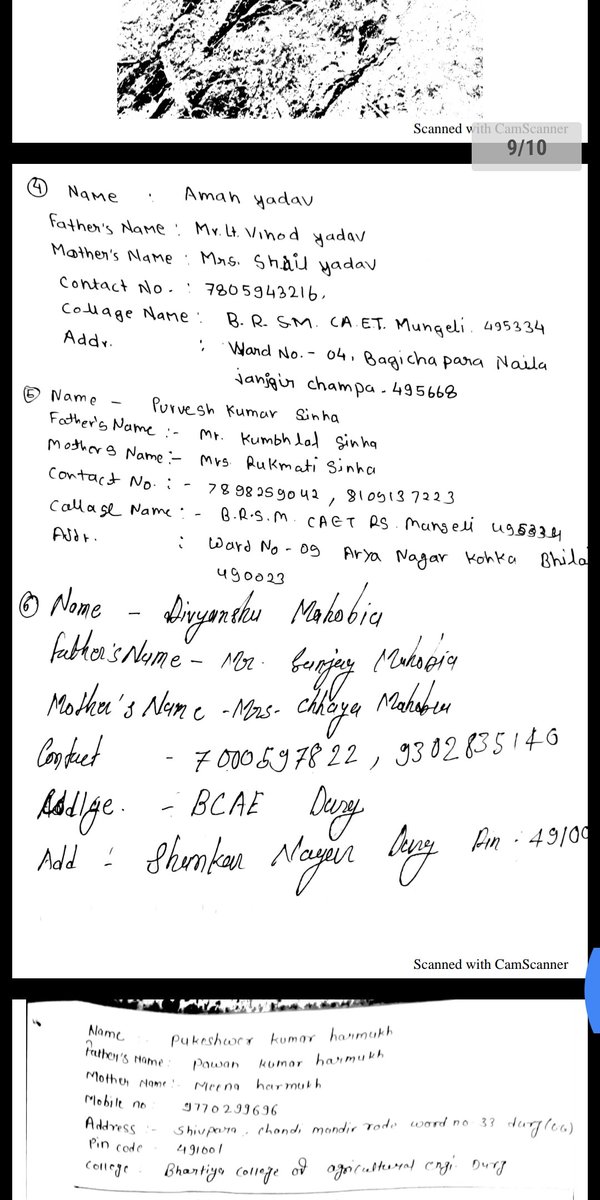 Scanned with CamScanner
9/10
④ Name : Aman yadav
Father's Name : Mr. Lt. Vinod yadav
Mother's Name : Mrs. Shail yadav
Contact No. : 7805943216.
Collage Name : B. R. S.M. CA.ET. Mungeli. 495334
Addr. : Ward No. - 04, Bagicha para Naila
janjgir champa - 495668
⑤ Name - Purvesh Kumar Sinha
Father's Name :- Mr. Kumbhlal Sinha
Mothers Name :- Mrs Rukmati Sinha
Contact No. : - 7898259042, 8109137223
Callage Name : - B.R.S.M. CAET RS. Mungeli 495334
Addr. : Ward No - 09 Arya Nagar Kohka Bhila
490023
⑥ Name - Divyanshu Mahobia
Father's Name - Mr. Sanjay Mahobia
Mother's Name - Mrs - Chhaya Mahobia
Contact - 7000597822, 9302835140
- BCAE Durg
Add :- Shankar Nagar Durg Pin : 49100
Scanned with CamScanner
Name : Pukeshwer kumar harmukh
Father's Name : Pawan kumar harmukh
Mother Name :- Meena harmukh
Mobile no 9770299696
Address :- Shivpara, chandi mandir rode word no 33 durg (CG)
Pin code . 491001
College . Bhartiya college of agricultural engi. Durg